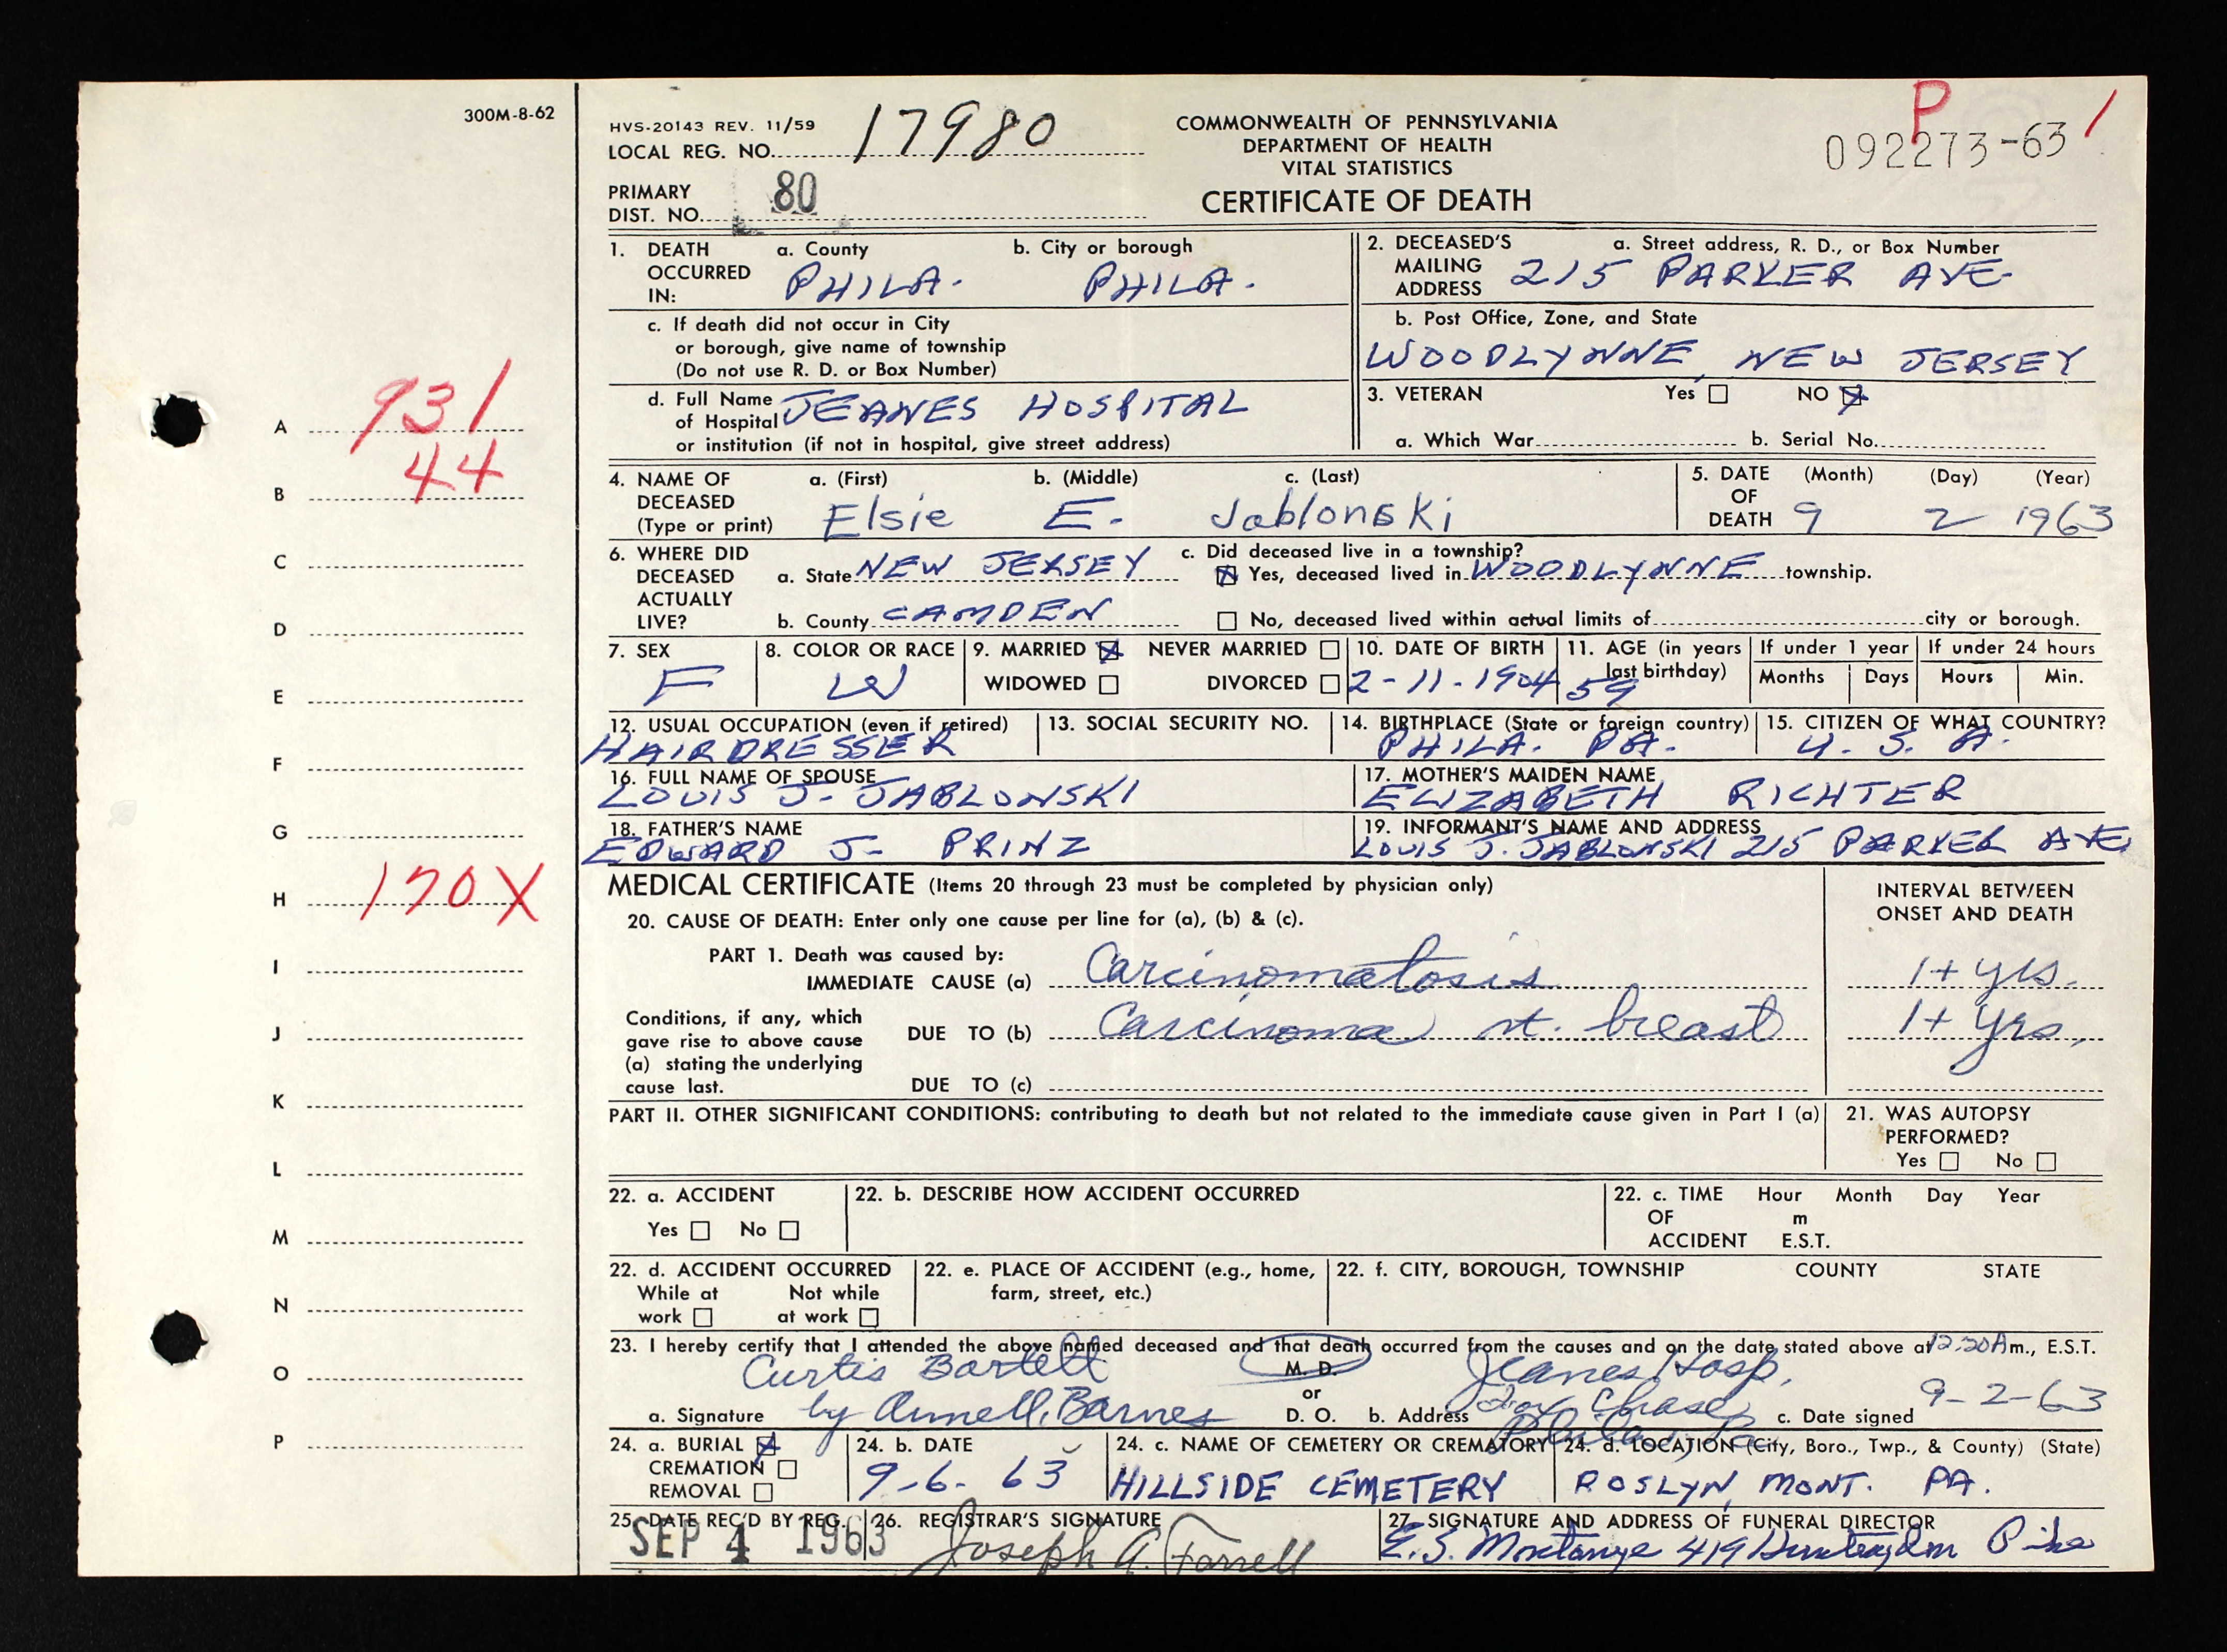 300M-8-62
HVS-20143 REV. 11/59
LOCAL REG. NO. 17980
COMMONWEALTH OF PENNSYLVANIA
DEPARTMENT OF HEALTH
VITAL STATISTICS
CERTIFICATE OF DEATH
P /
092273-63
PRIMARY
DIST. NO. 80
1. DEATH OCCURRED IN: a. County b. City or borough
PHILA. PHILA.
2. DECEASED'S MAILING ADDRESS a. Street address, R. D., or Box Number
215 PARKER AVE
c. If death did not occur in City
or borough, give name of township
(Do not use R. D. or Box Number)
b. Post Office, Zone, and State
WOODLYNNE, NEW JERSEY
d. Full Name of Hospital JEANES HOSPITAL
or institution (if not in hospital, give street address)
3. VETERAN Yes NO X
a. Which War b. Serial No.
4. NAME OF DECEASED (Type or print) a. (First) b. (Middle) c. (Last)
Elsie E. Jablonski
5. DATE OF DEATH (Month) (Day) (Year)
9 2 1963
6. WHERE DID DECEASED ACTUALLY LIVE?
a. State NEW JERSEY
b. County CAMDEN
c. Did deceased live in a township?
X Yes, deceased lived in WOODLYNNE township.
No, deceased lived within actual limits of city or borough.
7. SEX
F
8. COLOR OR RACE
W
9. MARRIED X NEVER MARRIED
WIDOWED DIVORCED
10. DATE OF BIRTH
2-11-1904
11. AGE (in years last birthday)
59
If under 1 year
Months Days
If under 24 hours
Hours Min.
12. USUAL OCCUPATION (even if retired)
HAIRDRESSER
13. SOCIAL SECURITY NO.
14. BIRTHPLACE (State or foreign country)
PHILA. PA.
15. CITIZEN OF WHAT COUNTRY?
U. S. A.
16. FULL NAME OF SPOUSE
LOUIS J. JABLONSKI
17. MOTHER'S MAIDEN NAME
ELIZABETH RICHTER
18. FATHER'S NAME
EDWARD J. PRINZ
19. INFORMANT'S NAME AND ADDRESS
LOUIS J. JABLONSKI 215 PARKER AVE.
MEDICAL CERTIFICATE (Items 20 through 23 must be completed by physician only)
20. CAUSE OF DEATH: Enter only one cause per line for (a), (b) & (c).
INTERVAL BETWEEN
ONSET AND DEATH
PART 1. Death was caused by:
IMMEDIATE CAUSE (a) Carcinomatosis 1+ yrs.
Conditions, if any, which
gave rise to above cause
(a) stating the underlying
cause last.
DUE TO (b) Carcinoma rt. breast 1+ yrs.
DUE TO (c)
PART II. OTHER SIGNIFICANT CONDITIONS: contributing to death but not related to the immediate cause given in Part I (a)
21. WAS AUTOPSY
PERFORMED?
Yes No
22. a. ACCIDENT
Yes No
22. b. DESCRIBE HOW ACCIDENT OCCURRED
22. c. TIME OF ACCIDENT Hour Month Day Year
m
E.S.T.
22. d. ACCIDENT OCCURRED
While at work Not while at work
22. e. PLACE OF ACCIDENT (e.g., home,
farm, street, etc.)
22. f. CITY, BOROUGH, TOWNSHIP COUNTY STATE
23. I hereby certify that I attended the above named deceased and that death occurred from the causes and on the date stated above at 12:20 A m., E.S.T.
Curtis Bartlett
by Barnes
a. Signature
M. D.
or
D. O.
b. Address Jeanes Hosp.
Fox Chase
Phila, Pa
c. Date signed 9-2-63
24. a. BURIAL X
CREMATION
REMOVAL
24. b. DATE
9-6-63
24. c. NAME OF CEMETERY OR CREMATORY
HILLSIDE CEMETERY
24. d. LOCATION (City, Boro., Twp., & County) (State)
ROSLYN, MONT. PA.
25. DATE REC'D BY REG.
SEP 4 1963
26. REGISTRAR'S SIGNATURE
Joseph A. Farrell
27. SIGNATURE AND ADDRESS OF FUNERAL DIRECTOR
E. S. Montanye 419 Huntingdon Pike
A 931
B 44
C
D
E
F
G
H 170X
I
J
K
L
M
N
O
P